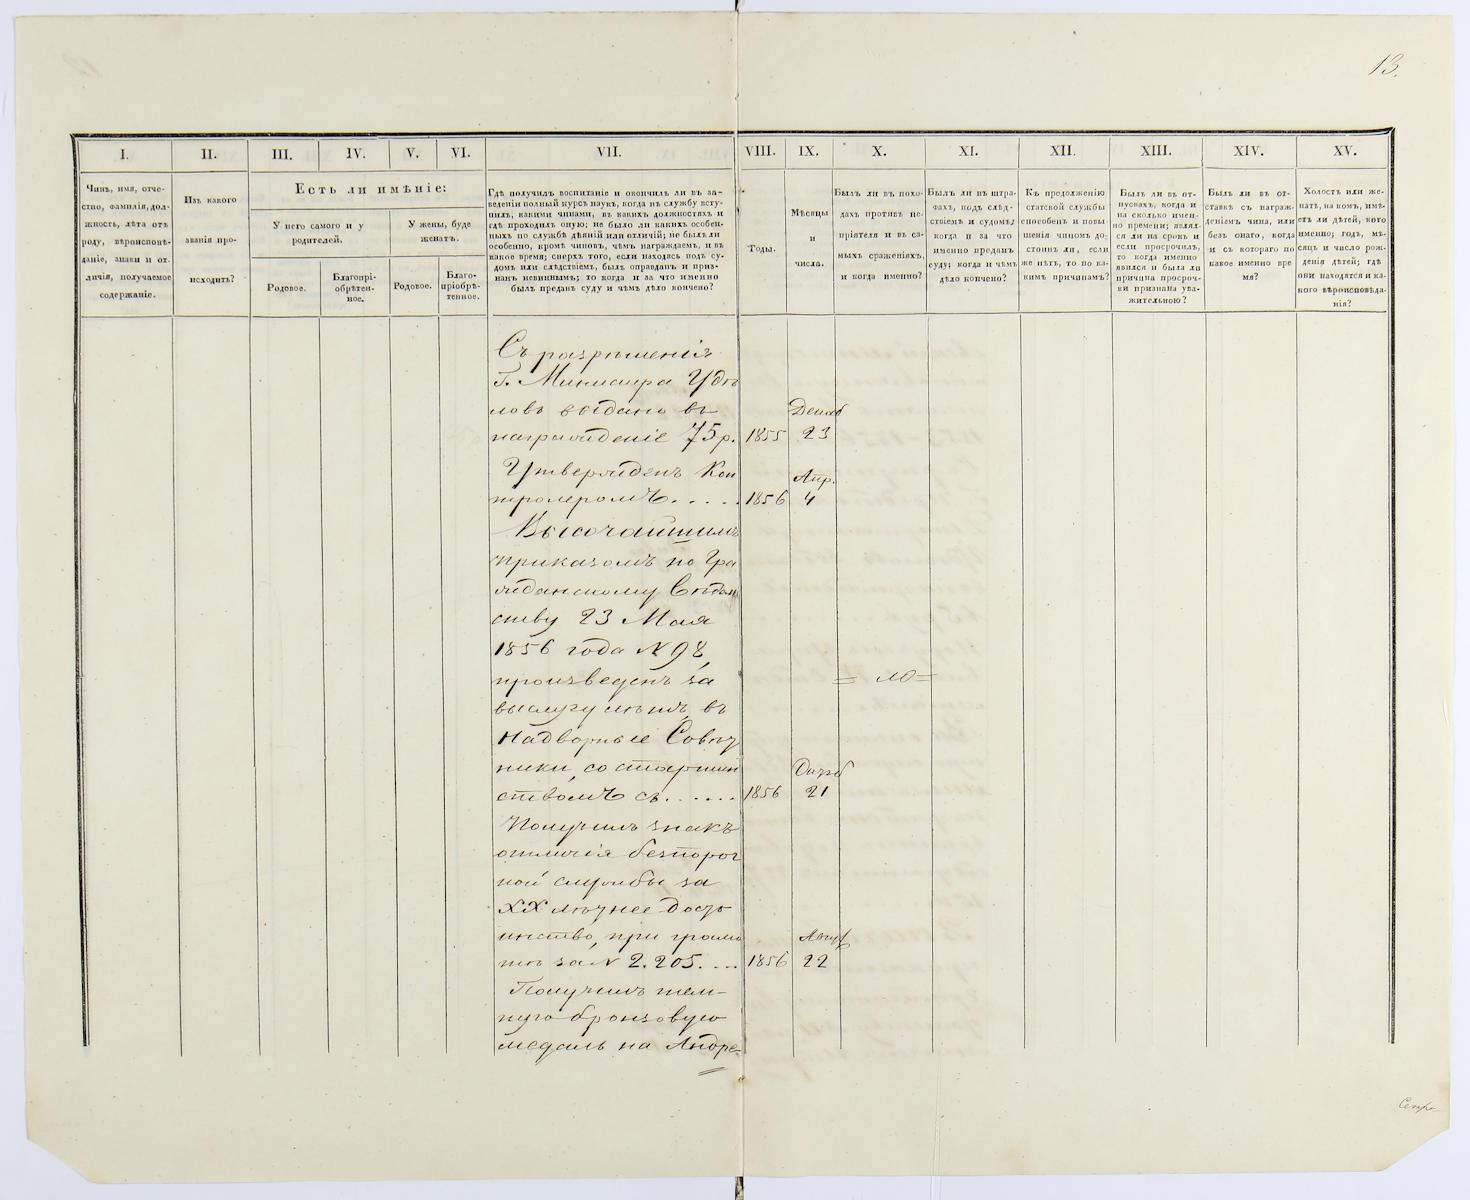 13.
I.
II.
III.
IV.
V.
VI.
VII.
VIII.
IX.
X.
XI.
XII.
XIII.
XIV.
XV.
Чинъ, имя, отче-
ство, фамилія, дол-
жность, лѣта отъ
роду, вѣроисповѣ-
даніе, знаки и от-
личія, получаемое
содержаніе.
Изъ какого
званія про-
исходитъ?
Есть ли имѣніе:
У него самого и у
родителей.
У жены, буде
женатъ.
Родовое.
Благопрі-
обрѣтен-
ное.
Родовое.
Благо-
пріобрѣ-
тенное.
Гдѣ получилъ воспитаніе и окончилъ ли въ за-
веденіи полный курсъ наукъ, когда въ службу всту-
пилъ, какими чинами, въ какихъ должностяхъ и
гдѣ проходилъ оную; не было ли какихъ особен-
ныхъ по службѣ дѣяній или отличій; не былъ ли
особенно, кромѣ чиновъ, чѣмъ награждаемъ, и въ
какое время; сверхъ того, если находясь подъ су-
домъ или слѣдствіемъ, былъ оправданъ и приз-
нанъ невиннымъ; то когда и за что именно
былъ преданъ суду и чѣмъ дѣло кончено?
Годы.
Мѣсяцы
и
числа.
Былъ ли въ похо-
дахъ противъ не-
пріятеля и въ са-
мыхъ сраженіяхъ,
и когда именно?
Былъ ли въ штра-
фахъ, подъ слѣд-
ствіемъ и судомъ;
когда и за что
именно преданъ
суду; когда и чѣмъ
дѣло кончено?
Къ продолженію
статской службы
способенъ и повы-
шенія чиномъ до-
стоинъ ли, если
же нѣтъ, то по ка-
кимъ причинамъ?
Былъ ли въ от-
пускахъ, когда и
на сколько имен-
но времени; являл-
ся ли на срокъ и
если просрочилъ,
то когда именно
явился и была ли
причина просроч-
ки признана ува-
жительною?
Былъ ли въ от-
ставкѣ съ награж-
деніемъ чина, или
безъ онаго, когда
и съ котораго по
какое именно вре-
мя?
Холостъ или же-
натъ, на комъ, имѣ-
етъ ли дѣтей, кого
именно; годъ, мѣ-
сяцъ и число рож-
денія дѣтей; гдѣ
они находятся и ка-
кого вѣроисповѣда-
нія?
Съ разрѣшенія
Г. Министра Удѣ
ловъ выдано въ
награжденіе 75 р. 1855 Декаб 23
Утвержденъ Кон
тролеромъ..... 1856 Апр. 4
Высочайшимъ
приказомъ по Гра
жданскому Вѣдом
ству 23 Мая
1856 года N 98,
произведенъ за
выслугу лѣтъ, въ
Надворные Совѣт
ники, со старшин
ствомъ съ...... 1856 21
Получилъ знакъ
отличія безпороч
ной службы за
XX лѣтнее досто
инство, при грамо
тѣ за N 2.205.... 1856 Авгус 22
Получилъ тем-
ную бронзовую
медаль на Андре-